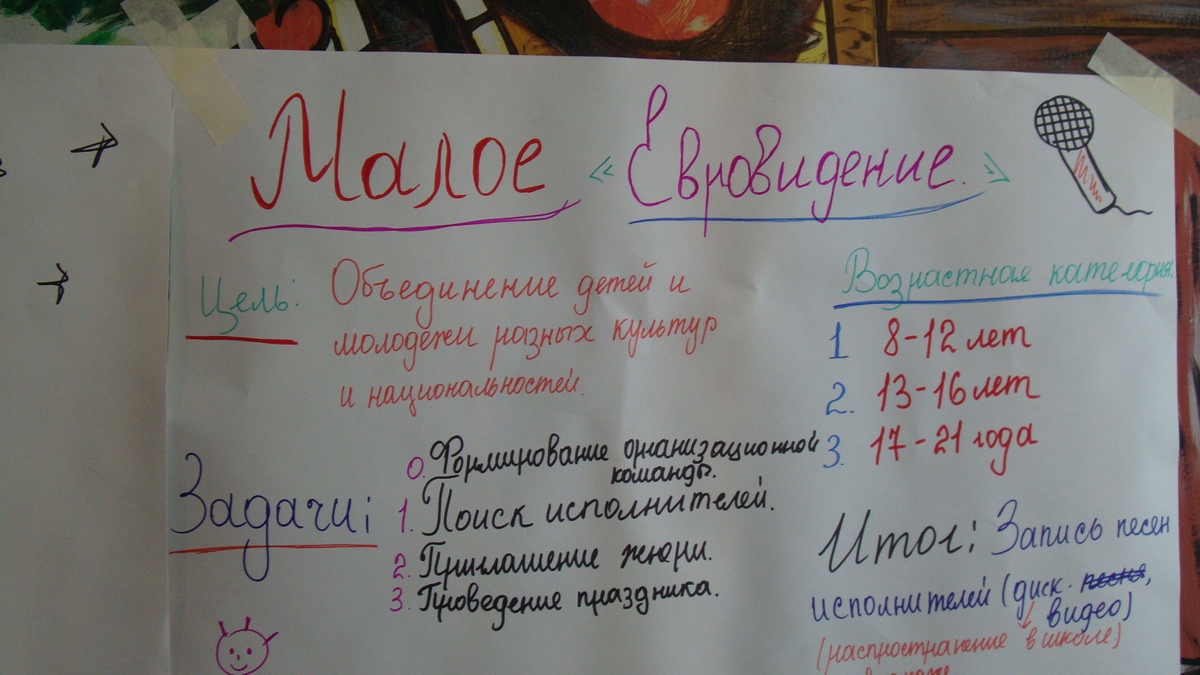 Малое «Евровидение.»
Цель: Объединение детей и
молодежи разных культур
и национальностей.
Возрастная категория:
1 8-12 лет
2. 13-16 лет
3. 17-21 года
Задачи:
0. Формирование организационной
команды.
1. Поиск исполнителей.
2. Приглашение жюри.
3. Проведение праздника.
Итог: Запись песен
исполнителей (диск песня,
видео)
(распространение в школе)